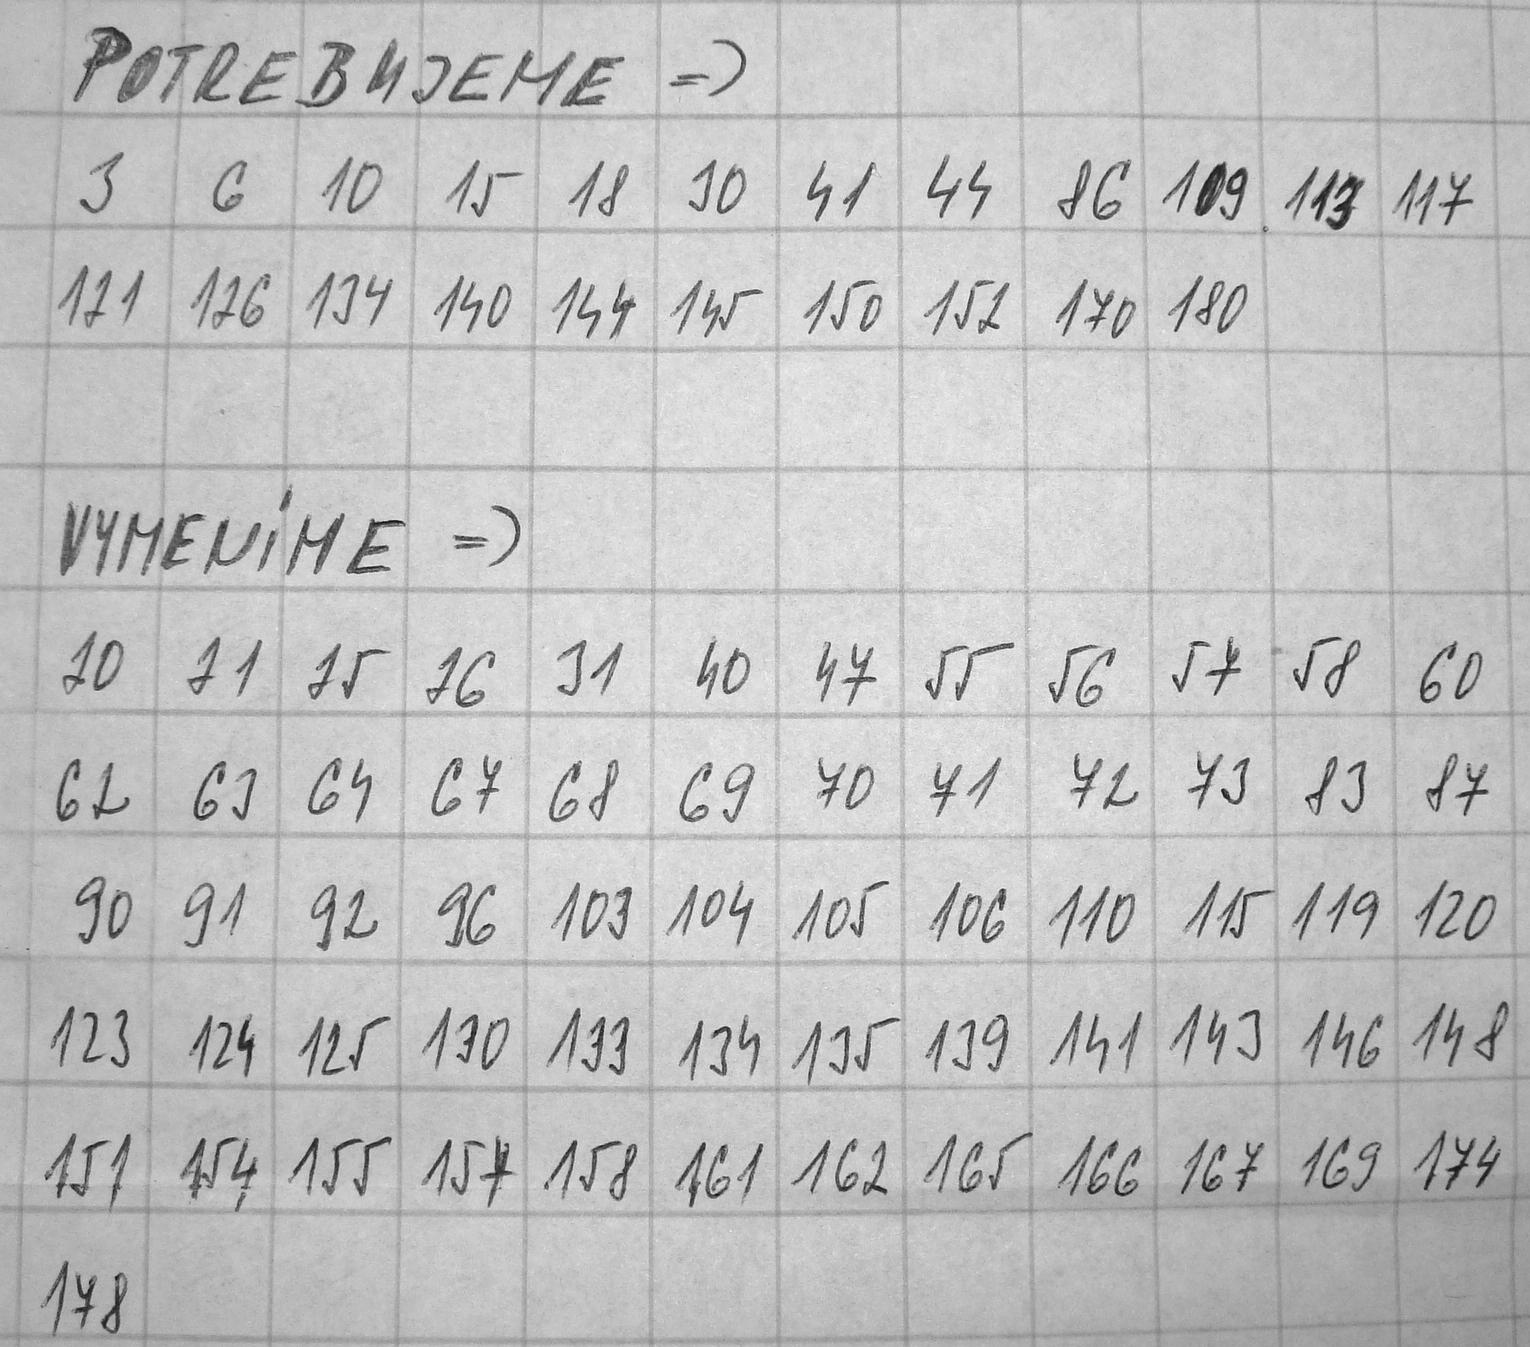 POTREBUJEME =>
3 6 10 15 18 30 41 44 86 109 113 117
121 126 134 140 144 145 150 152 170 180
VYMENÍME =>
20 21 25 26 31 40 47 55 56 57 58 60
62 63 64 67 68 69 70 71 72 73 83 87
90 91 92 96 103 104 105 106 110 115 119 120
123 124 125 130 133 134 135 139 141 143 146 148
151 154 155 157 158 161 162 165 166 167 169 174
178